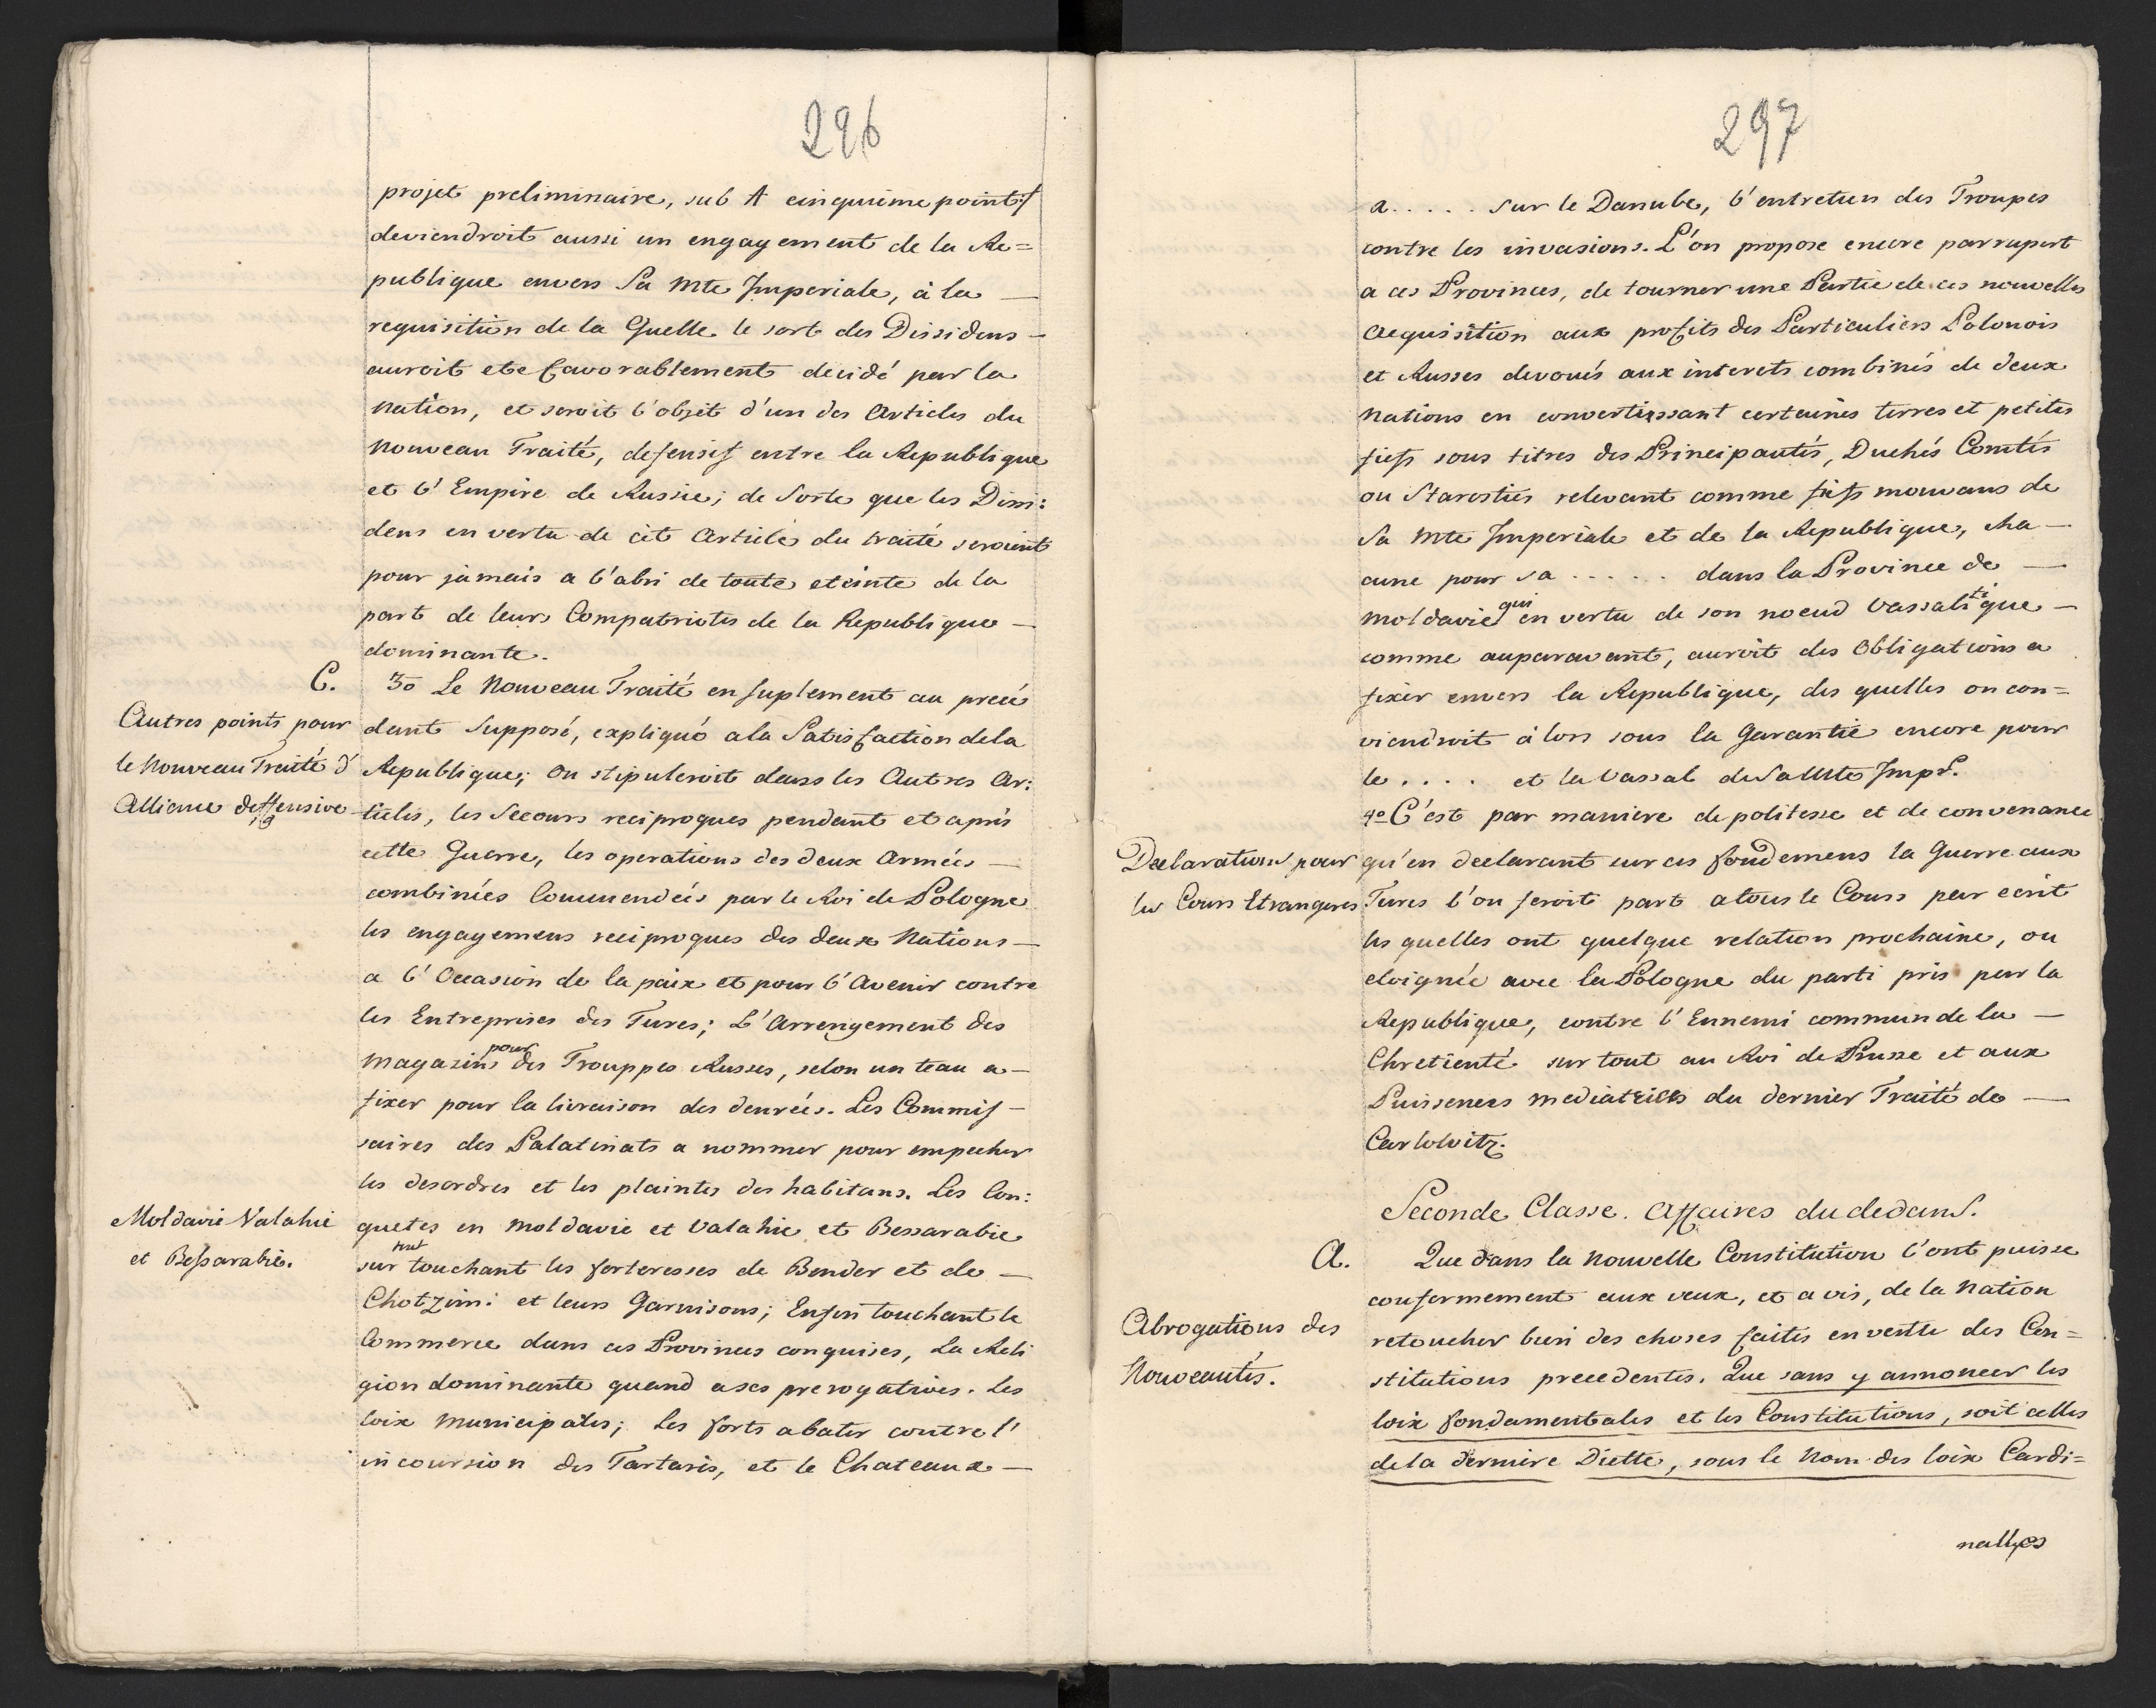 296
projet preliminaire, sub A cinquieme point
deviendroit aussi un engagement de la Re=
publique envers Sa Mte Imperiale, à la —
requisition de la Quelle le sort des Dissidens —
auroit ete favorablement decidé par la
Nation, et seroit l'objet d'un des Articles du
Nouveau Traité, defensif entre la Republique
et l'Empire de Russie; de Sorte que les Dissi:
dens en vertu de cet Article du traité seroient
pour jamais a l'abri de toute eteinte de la
part de leurs Compatriotes de la Republique —
dominante.
C.
Autres points pour
le Nouveau Traité d'
Alliance deffensive
3o Le Nouveau Traité en suplement au prece
dent Supposé, expliqué a la Satisfaction de la
Republique; on stipuleroit dans les Autres Ar:
ticles, les Secours reciproques pendant et après
cette Guerre, les operations des deux Armées —
combinées Commendées par le Roi de Pologne
les engagemens reciproques des deux Nations —
a l'Occasion de la paix et pour l'Avenir contre
les Entreprises des Turcs; L'Arrengement des
Magazins pour des Trouppes Russes, selon un teau a —
fixer pour la livraison des denrées. Les Commis —
saires des Palatinats a nommer pour empecher
les desordres et les plaintes des habitans. Les Con:
Moldavie Valahie
et Bessarabie.
quetes en Moldavie et Valahie et Bessarabie
sur touchant les forteresses de Bender et de —
Chotzim: et leurs Garnisons; Enfin touchant le
Commerce dans ces Provinces conquises, La Reli
gion dominante quand a ses prerogatives. Les
loix Municipales; Les forts a batir contre l'
incoursion des Tartaris, et le Chateaux —
297
a . . . . . sur le Danube, l'entretien des Troupes
contre les invasions. L'on propose encore par raport
a ces Provinces, de tourner une Partie de ces nouvelles
acquisition aux profits des Particuliers Polonois
et Russes devoués aux interets combinés de deux
Nations en convertissant certaines terres et petites
fiefs sous titres des Principautés, Duchés Comtés
ou Starosties relevant comme fiefs mouvans de
Sa Mte Imperiale et de la Republique, cha —
cune pour sa . . . . . . dans la Province de —
Moldavie qui en vertu de son noeud Vassalitique —
comme auparavant, auroit des Obligations a
fixer envers la Republique, des quelles on con=
viendroit alors sous la Garantie encore pour
le . . . . et la Vassal de Sa Mte Impl.
Declarations pour
les Cours Etrangeres
4o C'est par maniere de politesse et de convenance
qu'en declarant sur ces fondemens la Guerre aux
Turcs l'on feroit part a tous le Cours par ecrit
les quelles ont quelque relation prochaine, ou
eloignée avec la Pologne du parti pris par la
Republique, contre l'Ennemi commun de la —
Chretienté sur tout au Roi de Prusse et aux
Puissences mediatrices du dernier Traité de —
Carlowitz.
Seconde Classe. Affaires du dedans.
A.
Abrogations des
Nouveautés.
Que dans la Nouvelle Constitution l'ont puisse
confermement aux veux, et avis, de la Nation
retoucher bien des choses faites en vertu des Con=
stitutions precedentes. Que sans y annoncer les
loix fondamentales et les Constitutions, soit celles
de la derniere Diette, sous le Nom des loix Cardi=
nalles